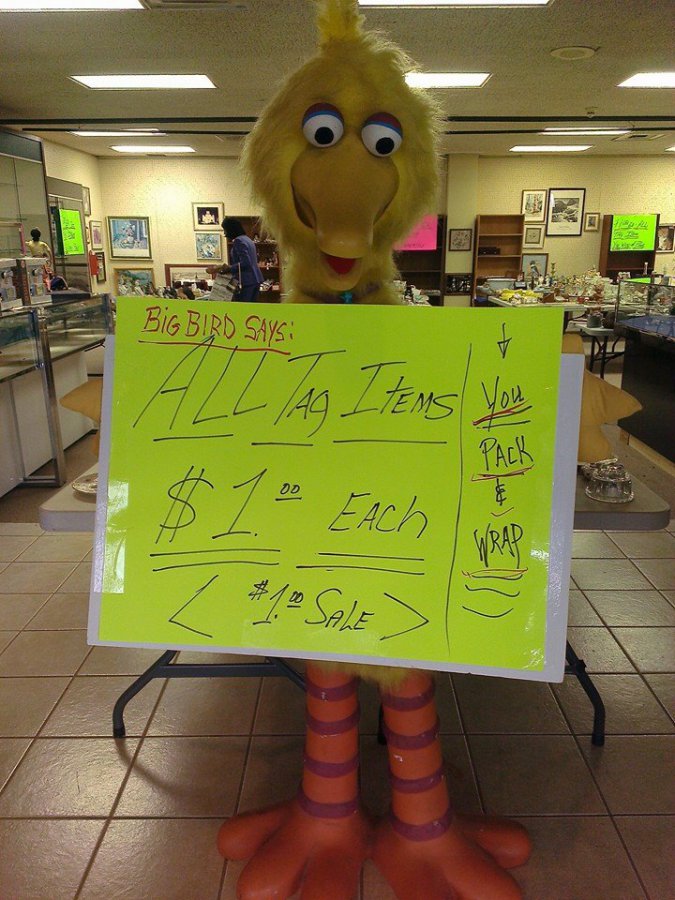 BIG BIRD SAYS:
ALL TAG ITEMS
$1.00 EACH
< $1.00 SALE >
↓
YOU
PACK
&
WRAP